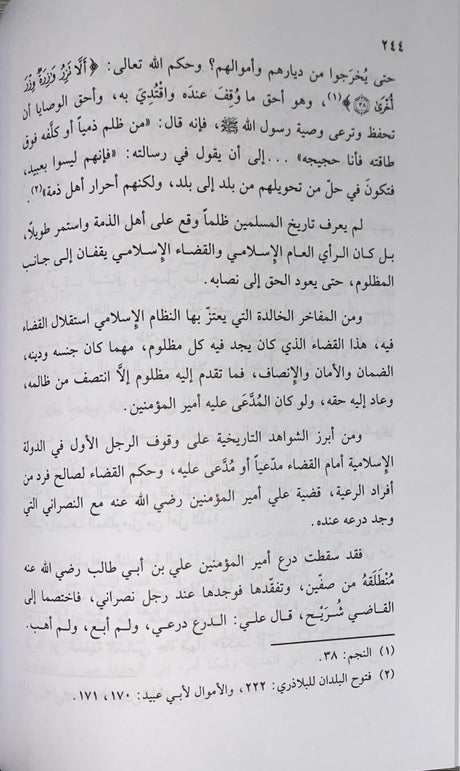 ٢٤٤
حتى يُخرَجوا من ديارهم وأموالهم؟ وحكم الله تعالى: ﴿أَلَّا تَزِرُ وَازِرَةٌ وِزْرَ
أُخْرَىٰ ۝٣٨﴾(١)، وهو أحق ما وُقِفَ عنده واقْتُدِيَ به، وأحق الوصايا أن
تحفظ وترعى وصية رسول الله ﷺ، فإنه قال: «من ظلم ذمياً أو كلَّفه فوق
طاقته فأنا حجيجه» ...إلى أن يقول في رسالته: «فإنهم ليسوا بعبيد،
فتكونَ في حلّ من تحويلهم من بلد إلى بلد، ولكنهم أحرار أهل ذمة»(٢).
لم يعرف تاريخ المسلمين ظلماً وقع على أهل الذمة واستمر طويلًا،
بل كان الرأي العام الإسلامي والقضاء الإسلامي يقفان إلى جانب
المظلوم، حتى يعود الحق إلى نصابه.
ومن المفاخر الخالدة التي يعتزّ بها النظام الإسلامي استقلال القضاء
فيه، هذا القضاء الذي كان يجد فيه كل مظلوم، مهما كان جنسه ودينه،
الضمان والأمان والإنصاف، فما تقدم إليه مظلوم إلاَّ انتصف من ظالمه،
وعاد إليه حقه، ولو كان المُدَّعَى عليه أمير المؤمنين.
ومن أبرز الشواهد التاريخية على وقوف الرجل الأول في الدولة
الإسلامية أمام القضاء مدّعياً أو مُدَّعى عليه، وحكم القضاء لصالح فرد من
أفراد الرعية، قضية علي أمير المؤمنين رضي الله عنه مع النصراني التي
وجد درعه عنده.
فقد سقطت درع أمير المؤمنين علي بن أبي طالب رضي الله عنه
مُنْطَلَقَهُ من صفّين، وتفقّدها فوجدها عند رجل نصراني، فاختصما إلى
القاضي شُرَيْح، قال علي: الدرع درعي، ولم أبع، ولم أهب.
(١) النجم: ٣٨.
(٢) فتوح البلدان للبلاذري: ٢٢٢، والأموال لأبي عبيد: ١٧٠، ١٧١.